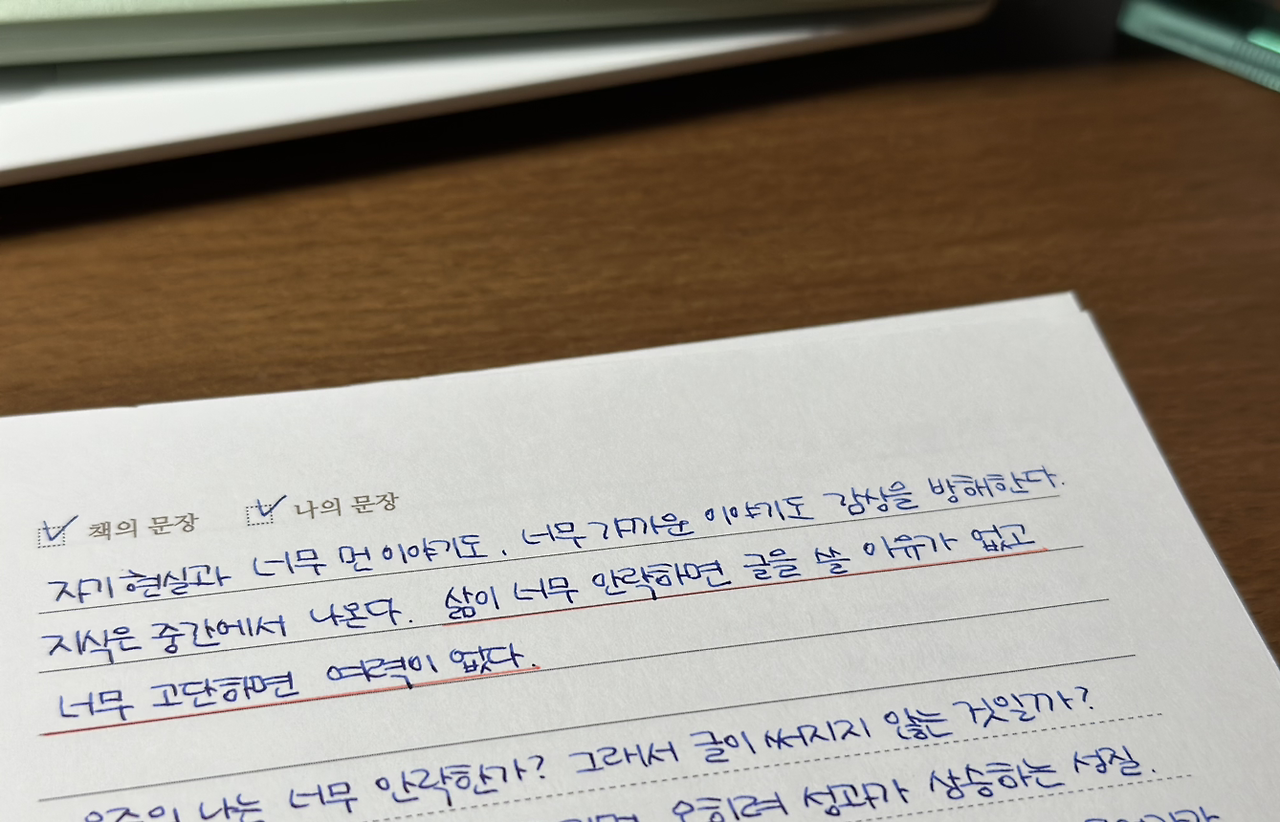 책의 문장 나의 문장
자기 현실과 너무 먼 이야기도, 너무 가까운 이야기도 감상을 방해한다.
지식은 중간에서 나온다. 삶이 너무 안락하면 글을 쓸 이유가 없고
너무 고단하면 여력이 없다.
요즘의 나는 너무 안락한가? 그래서 글이 써지지 않는 것일까?
오히려 성과가 상승하는 성질.